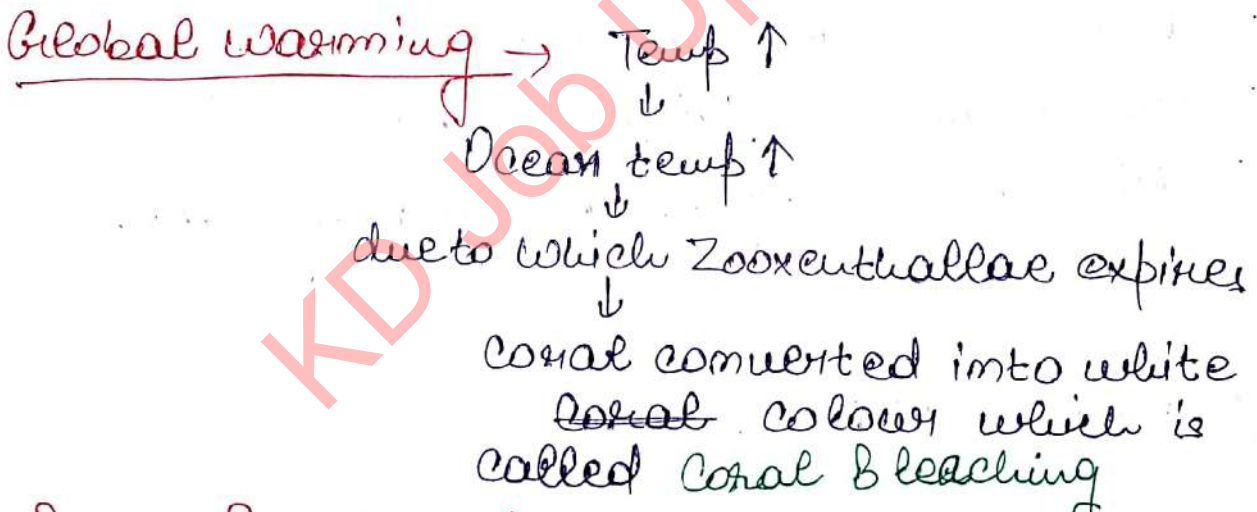 Global warming → Temp ↑
↓
Ocean temp ↑
↓
due to which Zooxenthallae expires
↓
coral converted into white
coral colour which is
called Coral Bleaching
KD Job